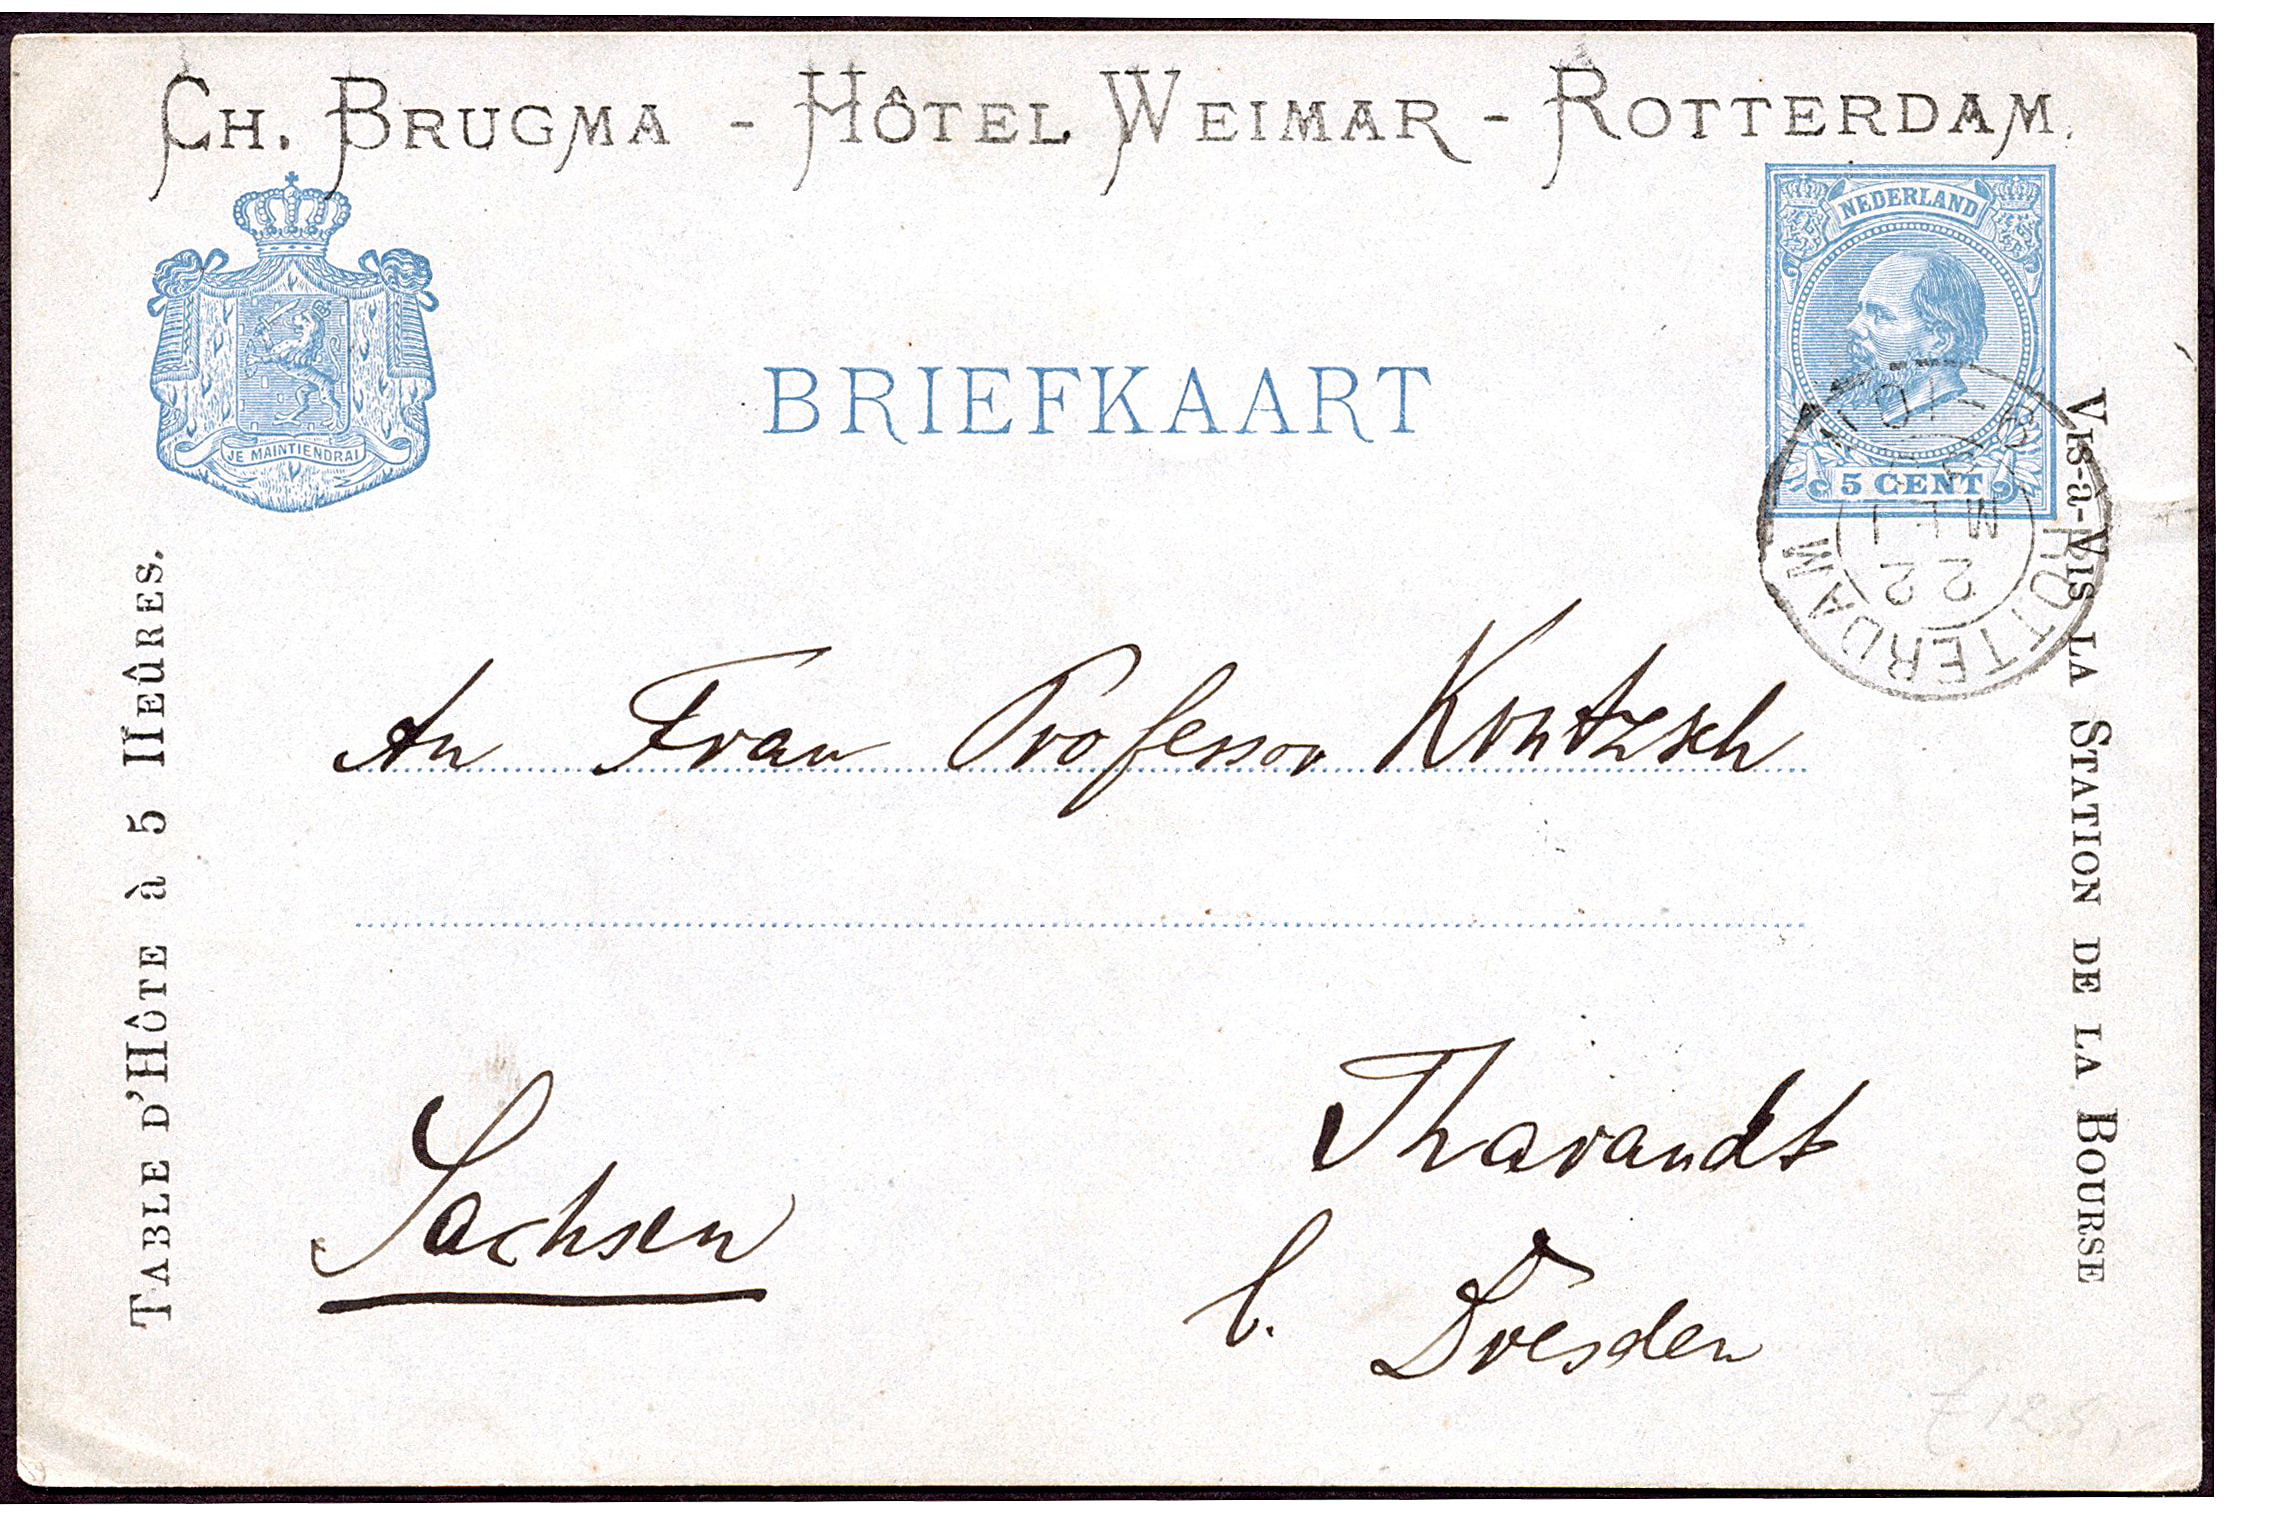 CH. BRUGMA - HÔTEL WEIMAR - ROTTERDAM.
NEDERLAND
JE MAINTIENDRAI
BRIEFKAART
5 CENT
ROTTERDAM
22
MEI
TABLE D'HÔTE à 5 HEÛRES.
VIS-à-VIS LA STATION DE LA BOURSE
An Frau Professor Kruntzsch
Tharandt
Sachsen
b. Dresden